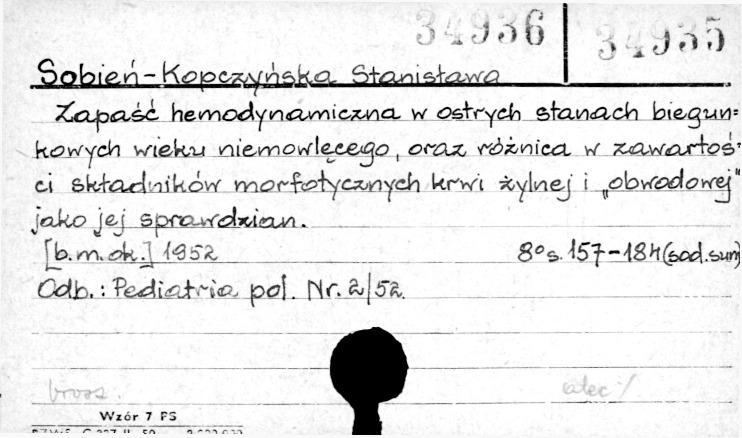 34936 34935
Sobień-Kopczyńska Stanisława
Zapaść hemodynamiczna w ostrych stanach biegun=
kowych wieku niemowlęcego, oraz różnica w zawartoś=
ci składników morfotycznych krwi żylnej i „obwodowej"
jako jej sprawdzian.
[b.m.ok.] 1952 8° s. 157-184 (sod.sum)
Odb.: Pediatria pol. Nr. 2/52.
bross.
Wzór 7 PS